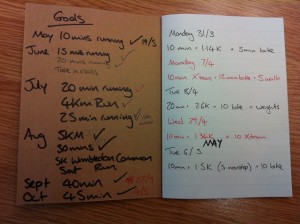 Goals
May 10 mins running 19/5
June 15 mins running
20 mins running
July 20 min running
4km Run
25 min running
Aug 5KM
30 mins
5K Wimbledon Common
Sat Run
Sept 40 min
Oct 45 min
Monday 31/3
10 min = 1.14K + 5min bike
Monday 7/4
10min Xtrain + 5 walk
Tue 8/4
20min 2.6K + 10 bike + weights
Wed 29/4
10min = 1.34K + 10 Xtrain
MAY
Tue 6/5
10min = 1.5K + 10 bike